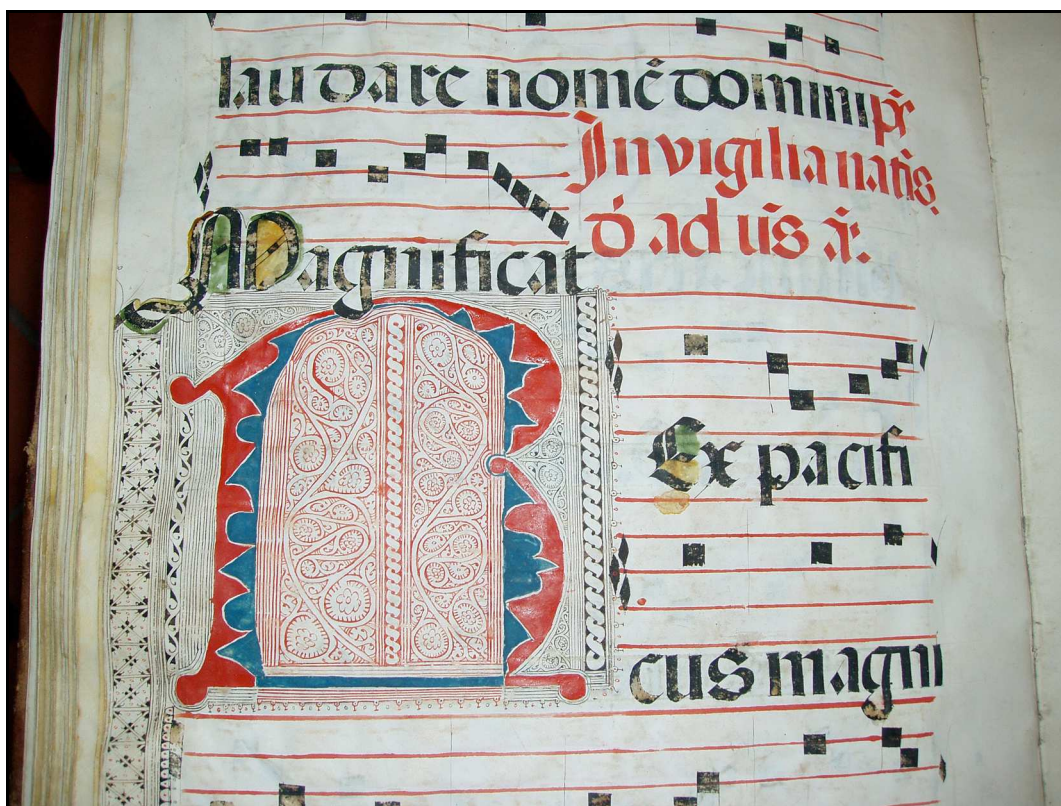 laudare nomē domini p̄s
In vigilia natīs
d̄ ad ūs ā.
Magnificat
R
Ex pacifi
cus magni